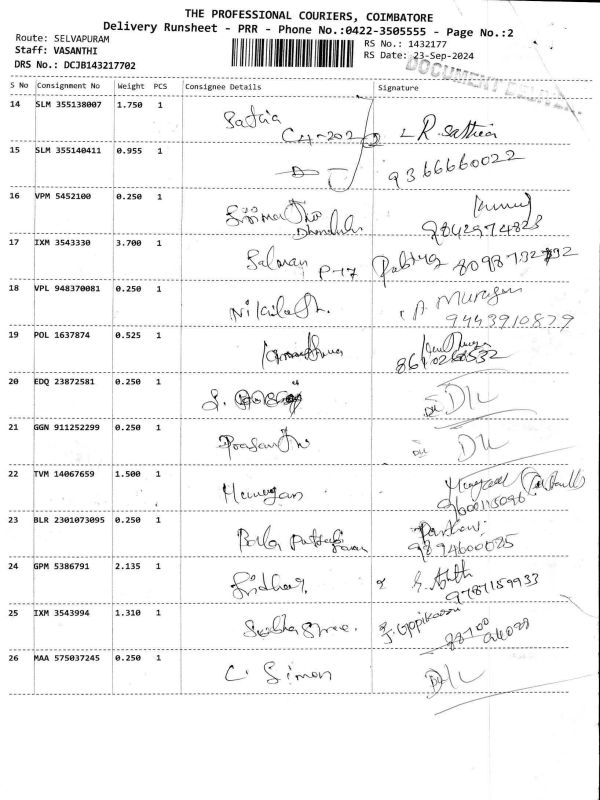 THE PROFESSIONAL COURIERS, COIMBATORE
Delivery Runsheet - PRR - Phone No.:0422-3505555 - Page No.:2
Route: SELVAPURAM
RS No.: 1432177
Staff: VASANTHI
RS Date: 23-Sep-2024
DRS No.: DCJB143217702
DOCUMENT
S No Consignment No Weight PCS Consignee Details Signature
14 SLM 355138007 1.750 1
C4-202 R.
15 SLM 355140411 0.955 1 9366660022
16 VPM 5452100 0.250 1
9842974823
17 IXM 3543330 3.700 1 Salman P-17
18 VPL 948370081 0.250 1 A Murugan
9443910879
19 POL 1637874 0.525 1
20 EDQ 23872581 0.250 1 D/L
21 GGN 911252299 0.250 1 D/L
22 TVM 14067659 1.500 1 Murugan
9600115096
23 BLR 2301073095 0.250 1
9894600085
24 GPM 5386791 2.135 1 Sridhar
9787159933
25 IXM 3543994 1.310 1 Subhashree.
26 MAA 575037245 0.250 1 C. Simon D/L